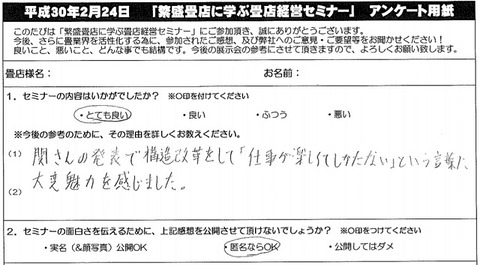 平成30年2月24日 「繁盛畳店に学ぶ畳店経営セミナー」 アンケート用紙
このたびは「繁盛畳店に学ぶ畳店経営セミナー」にご参加頂き、誠にありがとうございます。
今後、さらに畳業界を活性化する為に、参加されたご感想、及び弊社へのご意見・ご要望等をお聞かせください！
良いこと、悪いこと、どんな事でも結構です。今後の展示会の参考にさせて頂きますので、よろしくお願い致します。
畳店様名： お名前：
1．セミナーの内容はいかがでしたか？ ※○印を付けてください
・とても良い ・良い ・ふつう ・悪い
※今後の参考のために、その理由を詳しくお教えください。
(1) 関さんの発表で構造改革をして「仕事が楽しくてしかたない」という言葉に
(2) 大変魅力を感じました。
2．セミナーの面白さを伝えるために、上記感想を公開させて頂けないでしょうか？ ※○印をつけてください
・実名（&顔写真）公開OK ・匿名ならOK ・公開してはダメ